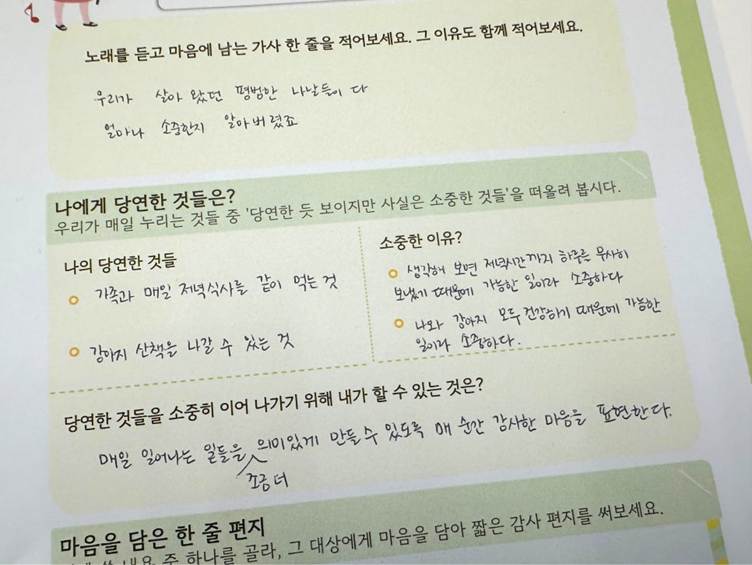 노래를 듣고 마음에 남는 가사 한 줄을 적어보세요. 그 이유도 함께 적어보세요.
우리가 살아 왔던 평범한 나날들이 다
얼마나 소중한지 알아버렸죠
나에게 당연한 것들은?
우리가 매일 누리는 것들 중 '당연한 듯 보이지만 사실은 소중한 것들'을 떠올려 봅시다.
나의 당연한 것들
가족과 매일 저녁식사를 같이 먹는 것
강아지 산책을 나갈 수 있는 것
소중한 이유?
생각해 보면 저녁시간까지 하루를 무사히
보냈기 때문에 가능한 일이라 소중하다
나와 강아지 모두 건강하기 때문에 가능한
일이라 소중하다.
당연한 것들을 소중히 이어 나가기 위해 내가 할 수 있는 것은?
매일 일어나는 일들을 의미있게 만들 수 있도록 매 순간 감사한 마음을 표현한다.
조금 더
마음을 담은 한 줄 편지
내용 중 하나를 골라, 그 대상에게 마음을 담아 짧은 감사 편지를 써보세요.